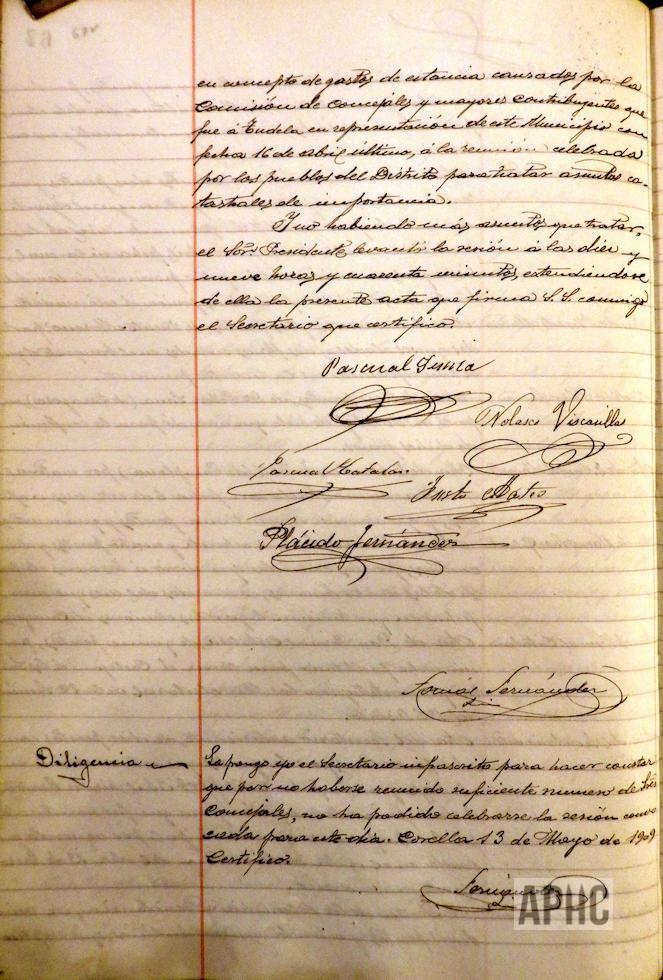 en concepto de gastos de estancia causados por la
Comisión de concejales y mayores contribuyentes que
fue á Tudela en representación de este Municipio con
fecha 16 de abril último, á la reunión celebrada
por los pueblos del Distrito para tratar asuntos ca-
tastrales de importancia.
Y no habiendo más asuntos que tratar,
el Sor. Presidente levantó la sesión á las diez y
nueve horas y cuarenta minutos, extendiéndose
de ella la presente acta que firma S.S. conmigo
el Secretario que certifico.
Pascual
Nolasco
Pascual Catalán
Justo Mateo
Plácido Fernández
Tomás Fernández
Diligencia
La pongo yo el Secretario infrascrito para hacer constar
que por no haberse reunido suficiente número de Sres
Concejales, no ha podido celebrarse la sesión convo
cada para este día. Corella 13 de Mayo de 1909
Certifico.
Fernández
APHC